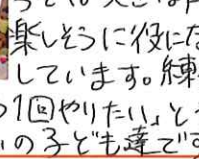 楽しそうに役にな
しています。練
1回やりたい」と
の子ども達です